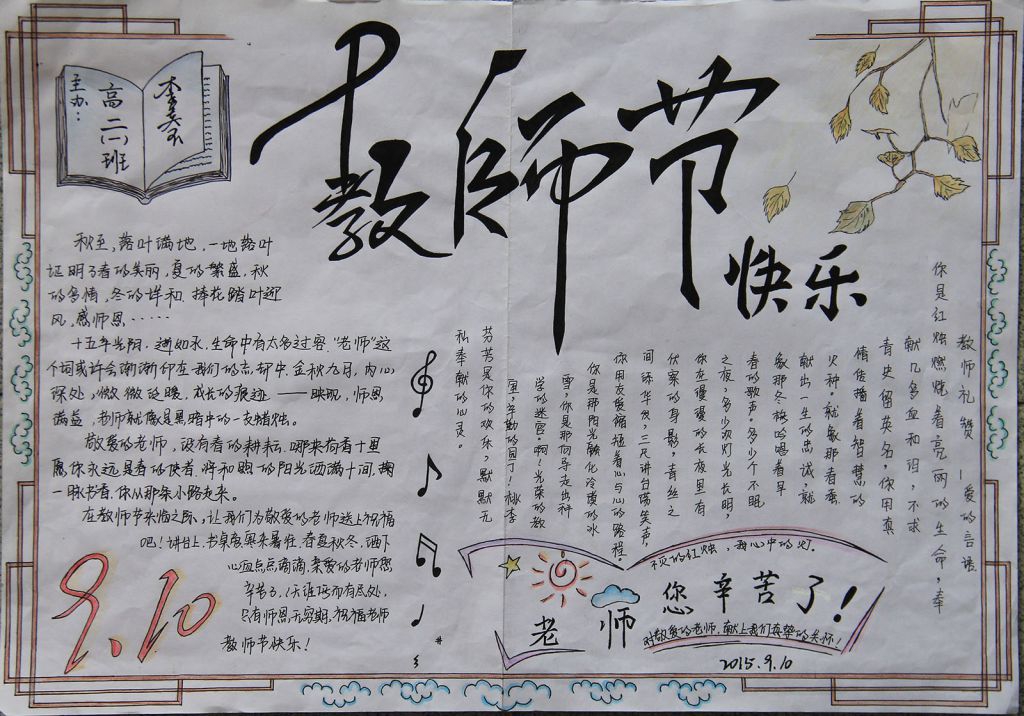 教师节
快乐
主办：
高二(一)班
秋至，落叶满地，一地落叶
证明了春的美丽，夏的繁盛，秋
的多情，冬的祥和。捧花踏叶迎
风，感师恩……
十五年光阴，逝如水，生命中有太多过客，"老师"这
个词或许会渐渐印在我们的心中。金秋九月，内心
深处，微微泛暖，成长的痕迹——映现，师恩
满益，老师就像是黑暗中的一支蜡烛。
敬爱的老师，没有春的耕耘，哪来荷香十里
愿你永远是春的使者，将和煦的阳光洒满十间，掬
一脉书香，你从那条小路走来。
在教师节来临之际，让我们为敬爱的老师送上祝福
吧！讲台上，书桌旁，寒来暑往，春夏秋冬，洒下
心血点点滴滴。亲爱的老师您
辛苦了，天涯海角有尽处，
只有师恩无穷期，祝福老师
教师节快乐！
9.10
教师礼赞—爱的言语
你是红烛燃烧着亮丽的生命，奉
献几多血和泪，不求
青史留英名，你用真
情传播着智慧的
火种。就象那春蚕
献出一生的忠诚，就
象那冬梅吟唱着早
春的歌声。多少个不眠
之夜，多少次灯光长明，
你在漫漫的长夜里有
伏案的身影，青丝之
间添华发，三尺讲台荡笑声，
你用友爱缩植着心与心的路程。
你是那阳光融化冷漠的冰
雪，你是那向导走出科
学的迷宫。啊！光荣的教
师，辛勤的园丁！桃李
芬芳是你的欢乐，默默无
私奉献的心灵。
的红烛，我心中的灯。
老师
您辛苦了！
对敬爱的老师，献上我们真挚的关怀！
2015.9.10